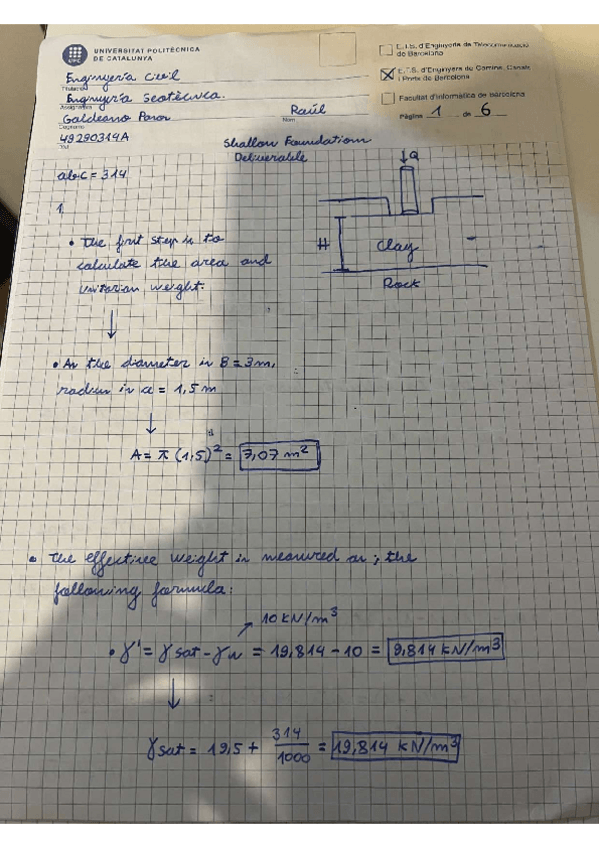 UNIVERSITAT POLITÈCNICA
DE CATALUNYA
UPC
Enginyería Civil
Titulació
Enginyería Geotècnica.
Assignatura
Galdeano
Raúl
Cognoms
Nom
49290314A
DNI
E.T.S. d'Enginyeria de Telecomunicació
de Barcelona
E.T.S. d'Enginyers de Camins, Canals
i Ports de Barcelona
Facultat d'Informàtica de Barcelona
Pàgina 1 de 6
Shallow Foundation
Deliverable
abc = 314
Q
1.
H
Clay
Rock
• The first step is to
calculate the area and
unitarian weight.
• As the diameter is B = 3m,
radius is a = 1,5 m
A = π (1,5)² = 7,07 m²
• The effective weight is measured as; the
following formula:
10 KN/m³
• γ' = γsat - γw = 19,814 - 10 = 9,814 KN/m³
γsat = 19,5 + 314/1000 = 19,814 KN/m³